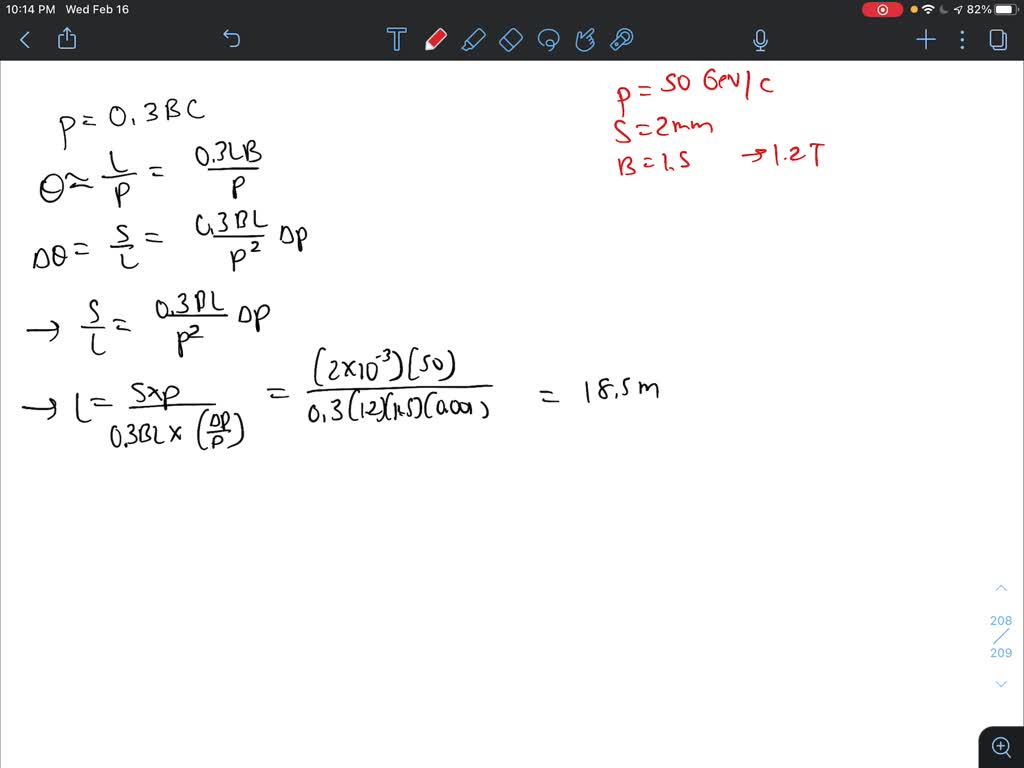 10:14 PM Wed Feb 16
82%
P = 0.3BC
θ ≈ L/P = 0.3LB/P
Δθ = S/L = 0.3BL/P² ΔP
→ S/L = 0.3BL/P² ΔP
→ L = S×P/0.3BL × (ΔP/P) = (2×10⁻³)(50)/0.3(1.2)(1.5)(0.001) = 18.5 m
P = 50 GeV/c
S = 2mm
B = 1.5 → 1.2T
208
209